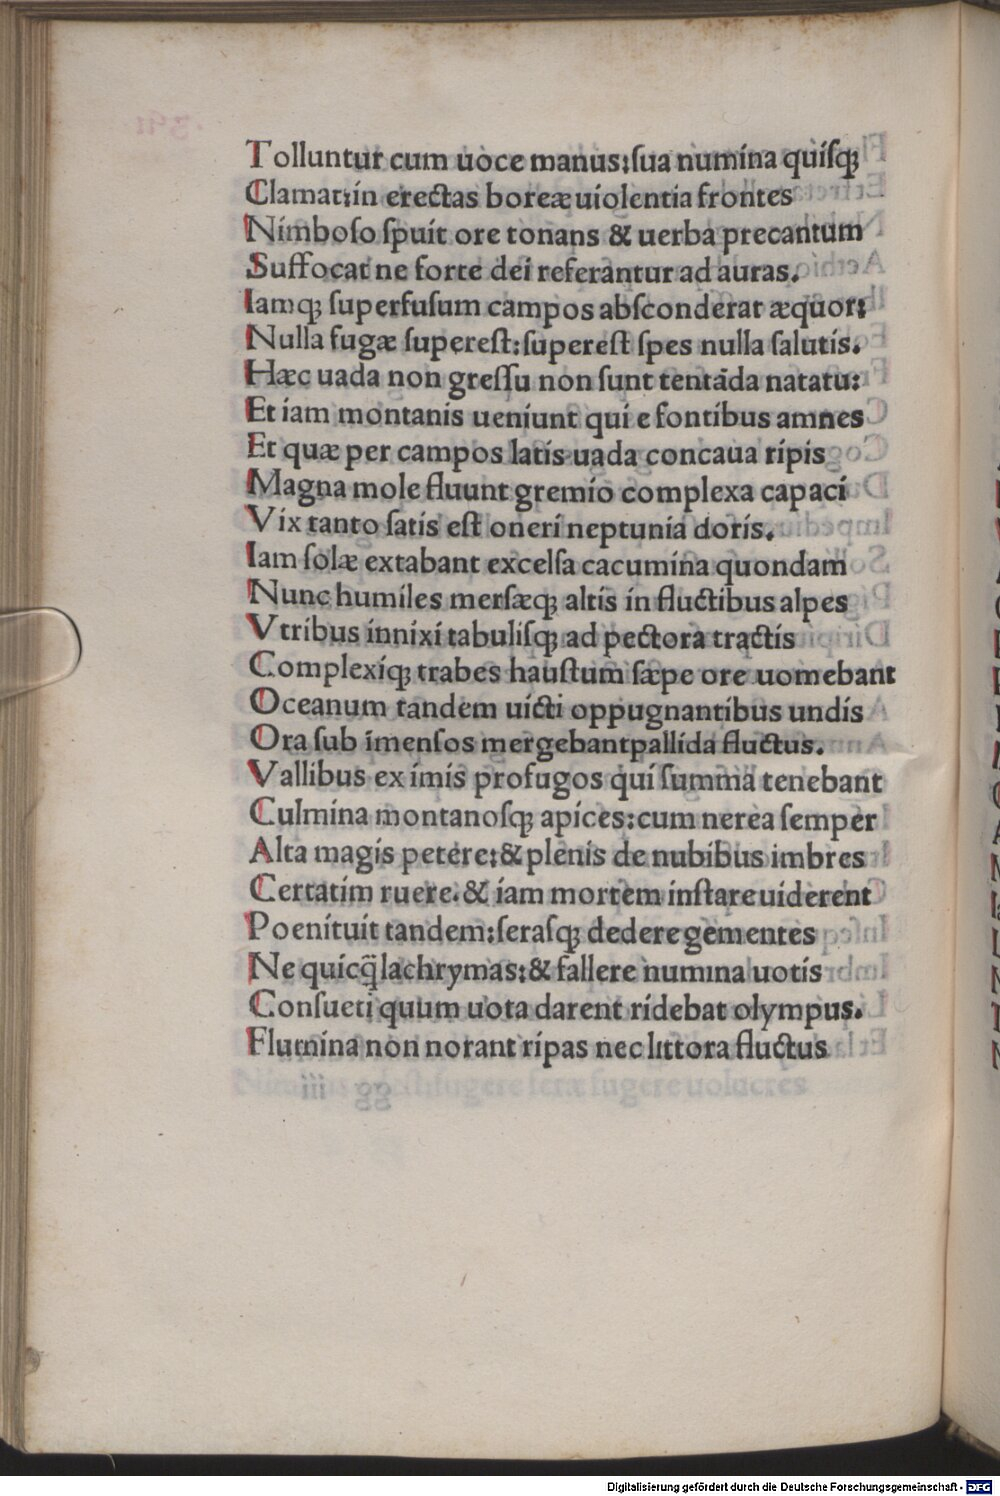 Tolluntur cum uoce manus:sua numina quiſq;
Clamat:in erectas boreæ uiolentia frontes
Nimboſo ſpuit ore tonans & uerba precantum
Suffocat ne forte dei referantur ad auras.
Iamq; ſuperfuſum campos abſconderat æquor:
Nulla fugæ ſupereſt:ſupereſt ſpes nulla ſalutis.
Hæc uada non greſſu non ſunt tentāda natatu:
Et iam montanis ueniunt qui e fontibus amnes
Et quæ per campos latis uada concaua ripis
Magna mole fluunt gremio complexa capaci
Vix tanto ſatis eſt oneri neptunia doris.
Iam ſolæ extabant excelſa cacumina quondam
Nunc humiles merſæq; altis in fluctibus alpes
Vtribus innixi tabuliſq; ad pectora tractis
Complexiq; trabes hauſtum ſæpe ore uomebant
Oceanum tandem uicti oppugnantibus undis
Ora ſub imenſos mergebantpallida fluctus.
Vallibus ex imis profugos qui ſumma tenebant
Culmina montanoſq; apices:cum nerea ſemper
Alta magis petere:& plenis de nubibus imbres
Certatim ruere.& iam mortem inſtare uiderent
Poenituit tandem:ſeraſq; dedere gementes
Ne quicq̃ lachrymas:& fallere numina uotis
Conſueti quum uota darent ridebat olympus.
Flumina non norant ripas nec littora fluctus
Digitalisierung gefördert durch die Deutsche Forschungsgemeinschaft - DFG